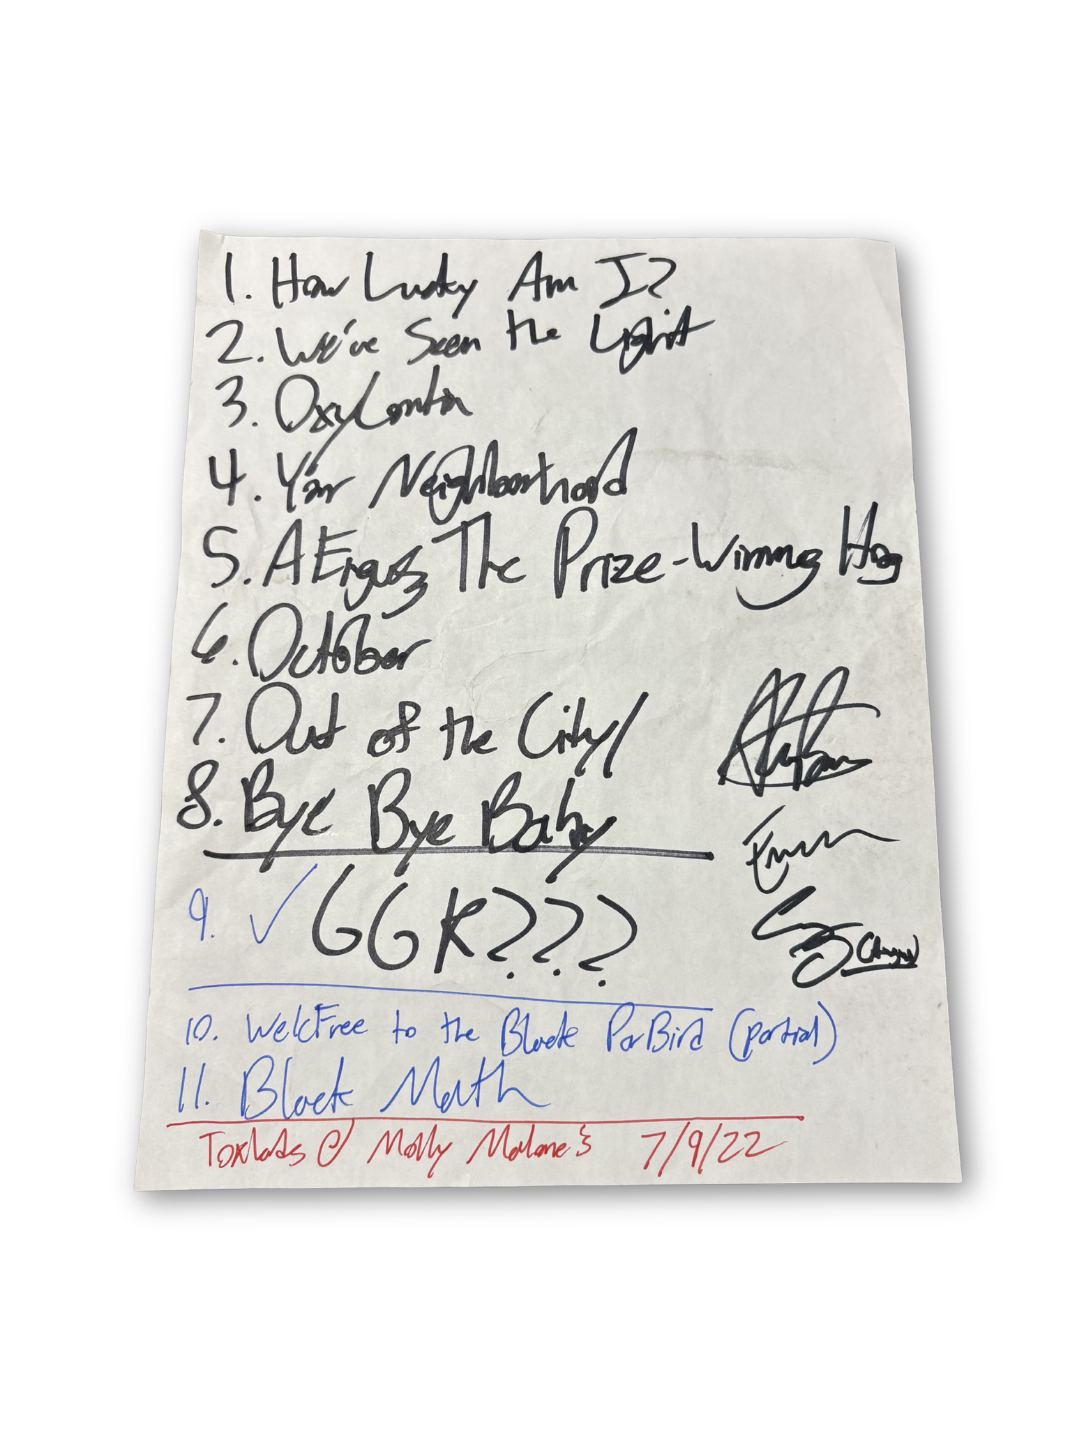 1. How Lucky Am I?
2. We've Seen the Light
3. OxyContin
4. Y'our Neighborhood
5. A Fergus, The Prize-Winning Hog
6. October
7. Out of the City/
8. Bye Bye Baby
9. ✓ GGK???
10. WelcFree to the Black ParBird (partial)
11. Black Math
Toxlads @ Molly Malone's 7/9/22